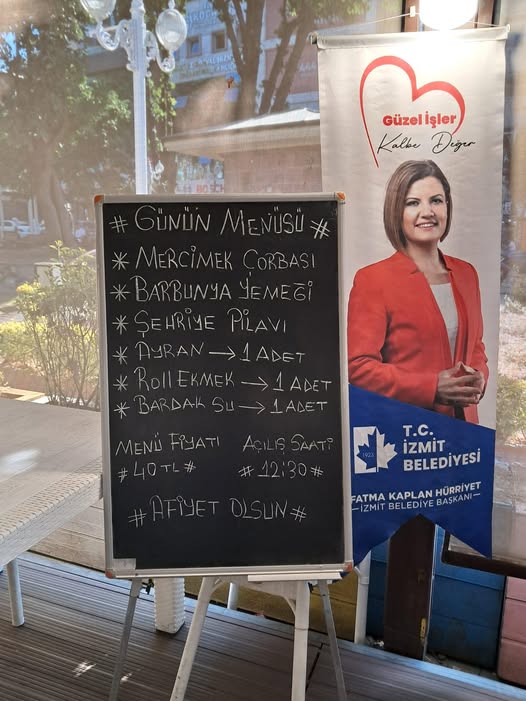 # GÜNÜN MENÜSÜ #
* MERCİMEK ÇORBASI
* BARBUNYA YEMEĞİ
* ŞEHRİYE PİLAVI
* AYRAN → 1 ADET
* ROLL EKMEK → 1 ADET
* BARDAK SU → 1 ADET
MENÜ FİYATI
# 40 TL #
AÇILIŞ SAATİ
# 12:30 #
# AFİYET OLSUN #
Güzel İşler
Kalbe Değer
1923
T.C.
İZMİT
BELEDİYESİ
FATMA KAPLAN HÜRRİYET
İZMİT BELEDİYE BAŞKANI